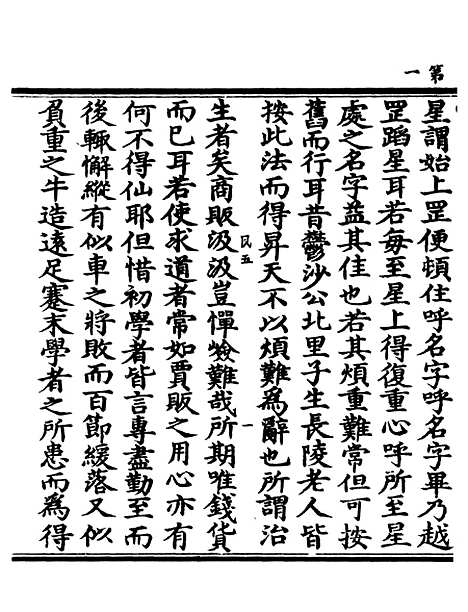 第一
星謂始上罡便頓住呼名字呼名字畢乃越
罡蹈星耳若每至星上得復重心呼所至星
處之名字益其佳也若其煩重難常但可按
舊而行耳昔鬱沙公北里子生長陵老人皆
按此法而得昇天不以煩難為辭也所謂治
民五 一
生者矣商販汲汲豈憚嶮難哉所期唯錢貨
而已耳若使求道者常如賈販之用心亦有
何不得仙耶但惜初學者皆言專盡勤至而
後輙懈縱有似車之將敗而百節緩落又似
負重之牛造遠足蹇末學者之所患而為得